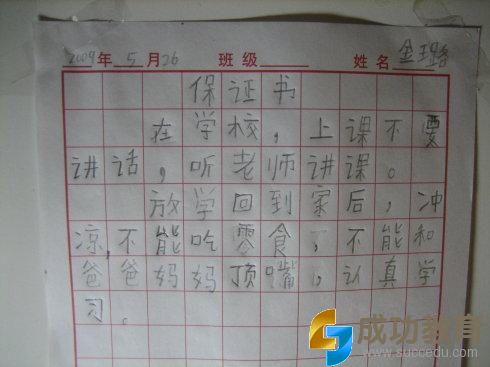 2009年 5月26 班级 姓名 金璐
保证书
在学校，上课不要
讲话，听老师讲课。
放学回到家后，冲
凉，不能吃零食，不能和
爸爸妈妈顶嘴，认真学
习。
成功教育
www.succedu.com